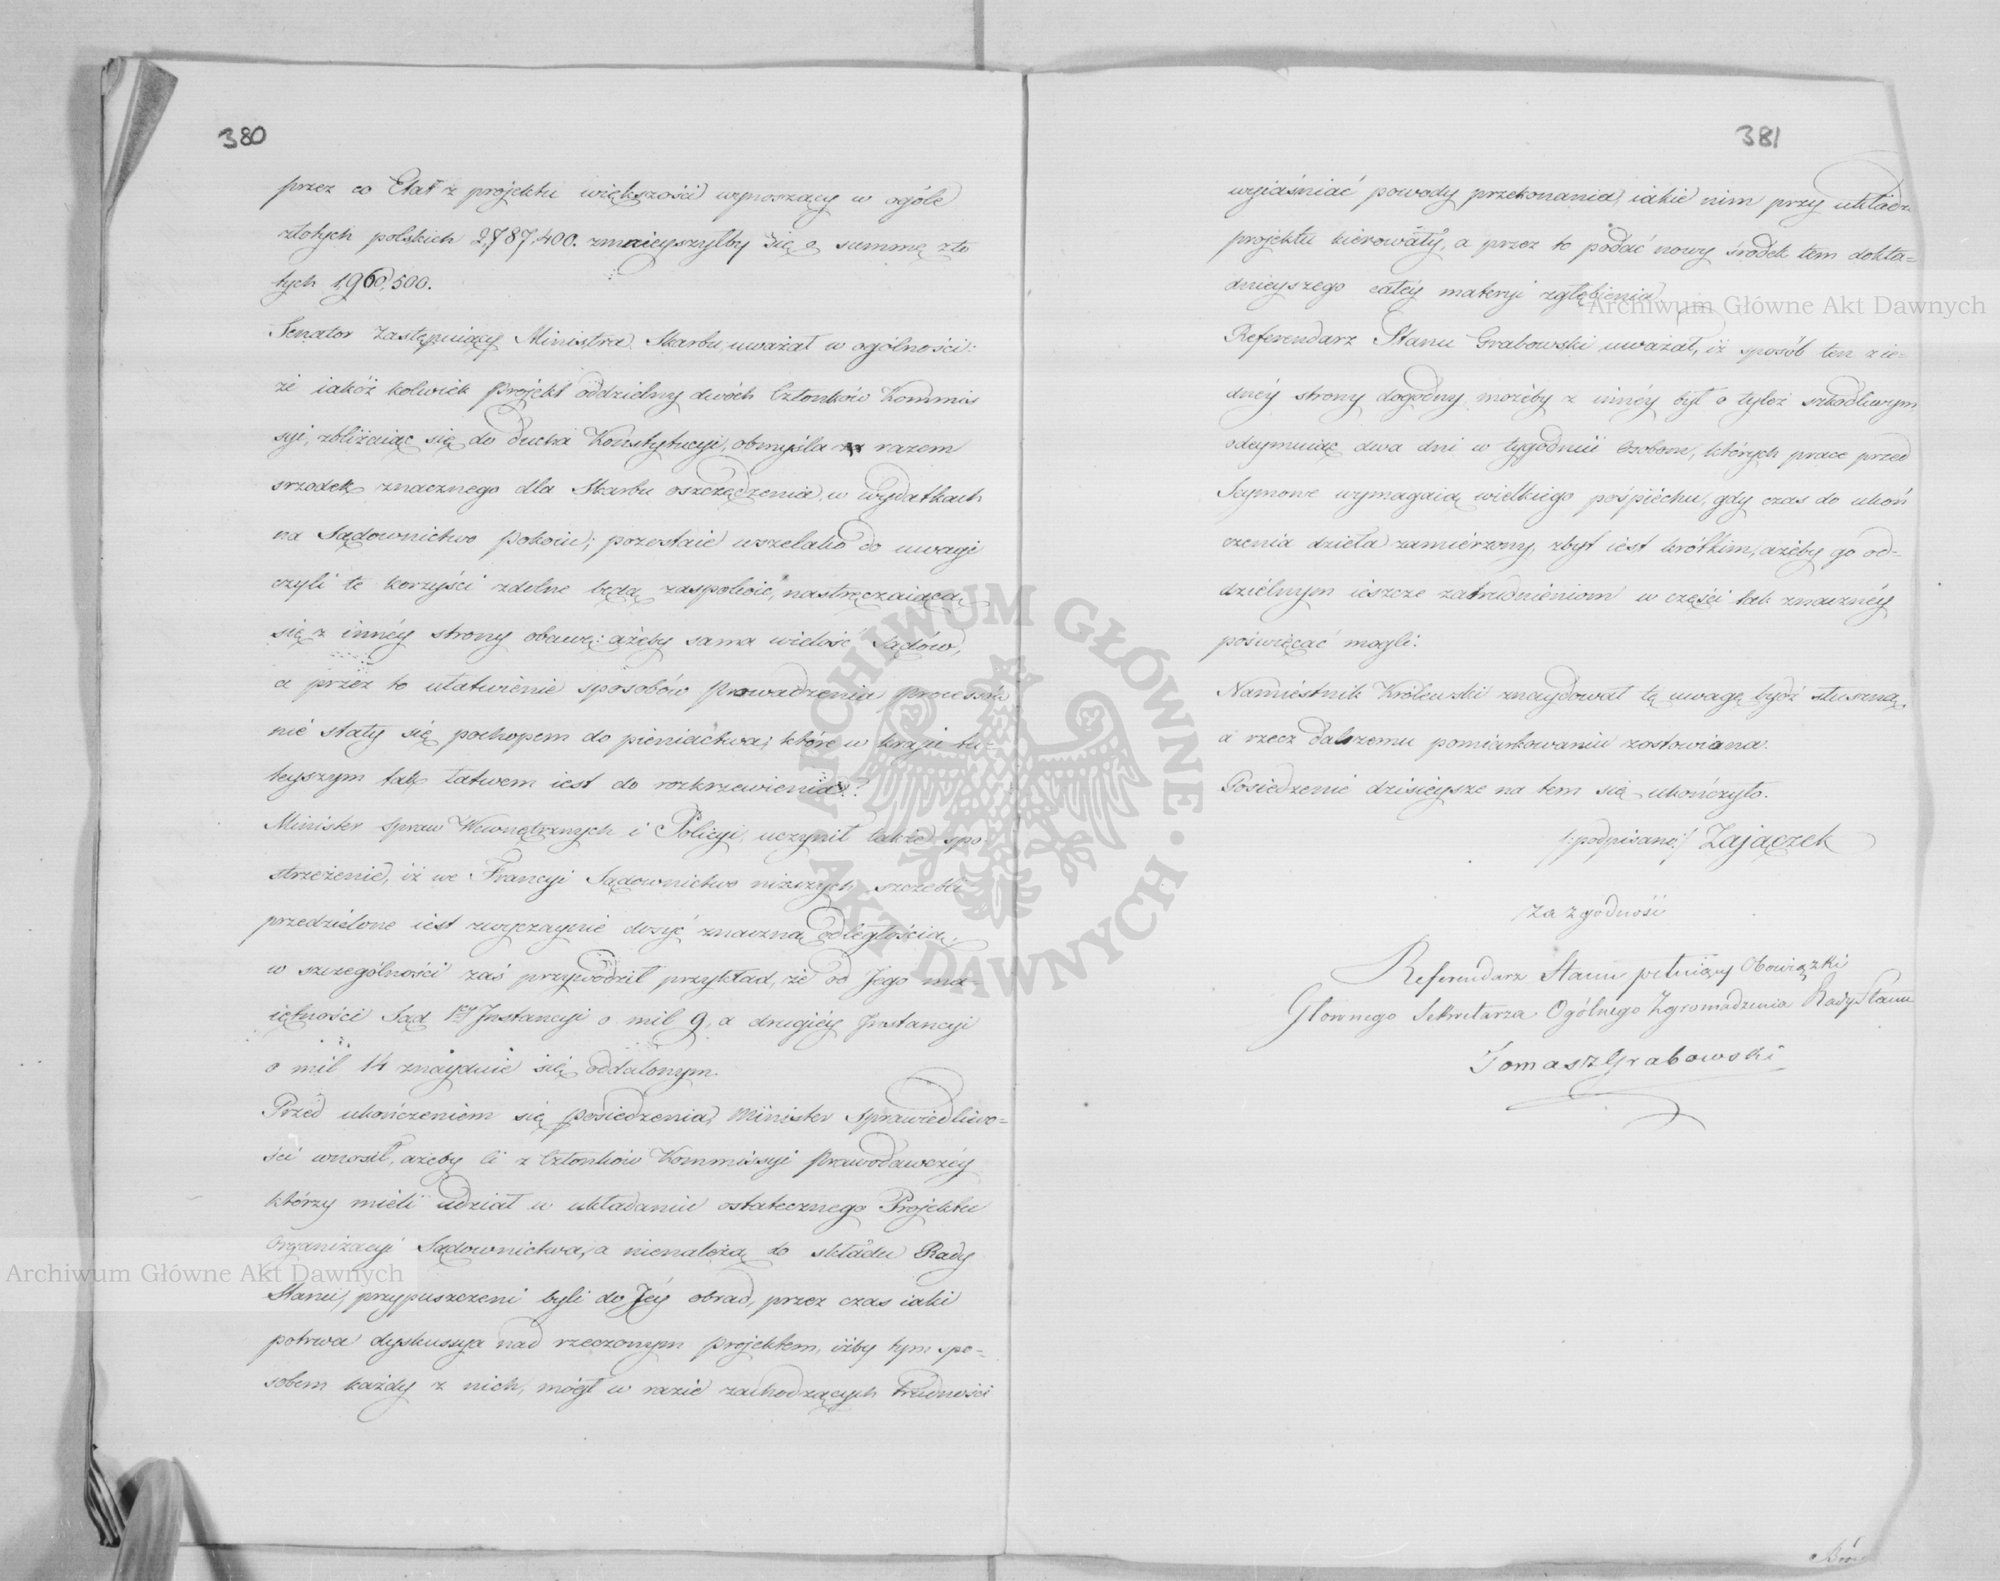 380
przez co Etat z projektu większości wynoszący w ogóle
złotych polskich 2,787,400. zmnieyszyłby się o summę zło
tych 1,960,500.
Senator Zastępuiący Ministra Skarbu, uważał w ogólności:
że iakóż kolwiek Projekt oddzielny dwóch Członków Kommis
syi, zbliżaiąc się do ducha Konstytucyi, obmyśla razem
srzodek znacznego dla Skarbu oszczędzenia w wydatkach
na Sądownictwo Pokoiu; pozostaie wszelako do uwagi
czyli te korzyści zdolne będą zaspokoić, nastręczaiącą
się z innéy strony obawę: ażeby sama wielość Sądów,
a przez to ułatwienie sposobów prowadzenia processów
nie stały się pochopem do pieniactwa, które w kraju tu-
teyszym tak łatwem iest do rozkrzewienia?
Minister Spraw Wewnętrznych i Policyi, uczynił także spo-
strzeżenie, iż we Francyi Sądownictwo niższych szczebli
przedzielone iest zwyczaynie dosyć znaczną odległością,
w szczególności zaś przywodził przykład, że od Jego ma-
iętności Sąd 1ey Instancyi o mil 9, a drugiéy Instancyi
o mil 14 znayduie się oddalonym.
Przed ukończeniem się posiedzenia, Minister Sprawiedliwo-
ści wnosił, ażeby ci z Członków Kommissyi Prawodawczéy
którzy mieli udział w układaniu ostatecznego Projektu
Organizacyi Sądownictwa, a nienależą do składu Rady
Stanu, przypuszczeni byli do Jéy obrad, przez czas iaki
potrwa dyskussya nad rzeczonym projektem, iżby tym spo-
sobem każdy z nich, mógł w razie zachodzących trudności
381
wyiaśniać powody przekonania, iakie nim przy układz.
projektu kierowały, a przez to podać nowy środek tem dokła-
dnieyszego całéy materyi zgłębienia.
Referendarz Stanu Grabowski uważał, iż sposób ten z ie-
dnéy strony dogodny, możeby z innéy był o tyleż szkodliwym
odeymuiąc dwa dni w tygodniu osobom, których prace przed
Seymowe wymagaią wielkiego pośpiéchu, gdy czas do ukoń
czenia dzieła zamierzony, zbyt iest krótkim, ażeby go od-
dzielnym ieszcze zatrudnieniom w części tak znacznéy
poświęcać mogli.
Namiéstnik Królewski znaydował tę uwagę bydź słuszną,
a rzecz dalszemu pomiarkowaniu zostawiona.
Posiedzenie dzisieysze na tem się ukończyło.
/:podpisano:/ Zajączek
Za zgodność
Referendarz Stanu pełniący Obowiązki
Głównego Sekretarza Ogólnego Zgromadzenia Rady Stanu
Tomasz Grabowski
Archiwum Główne Akt Dawnych
Archiwum Główne Akt Dawnych
ARCHIWUM GŁÓWNE AKT DAWNYCH